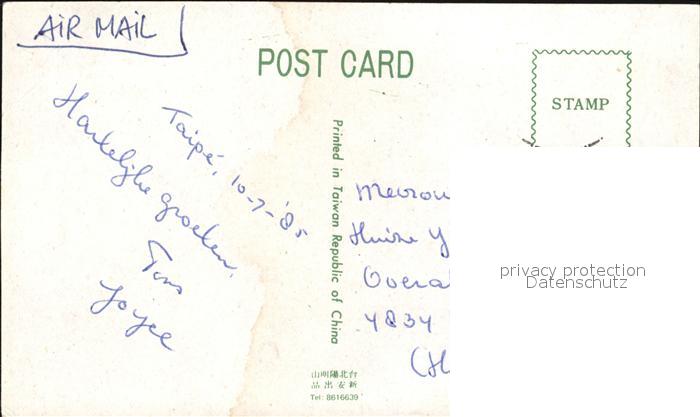 AIR MAIL
POST CARD
STAMP
Taipé, 10-7-'85
Hartelijke groeten,
Ton
Joyce
Printed in Taiwan Republic of China
Huize
4834
台北陽明山
新安出品
Tel: 8616639
privacy protection
Datenschutz